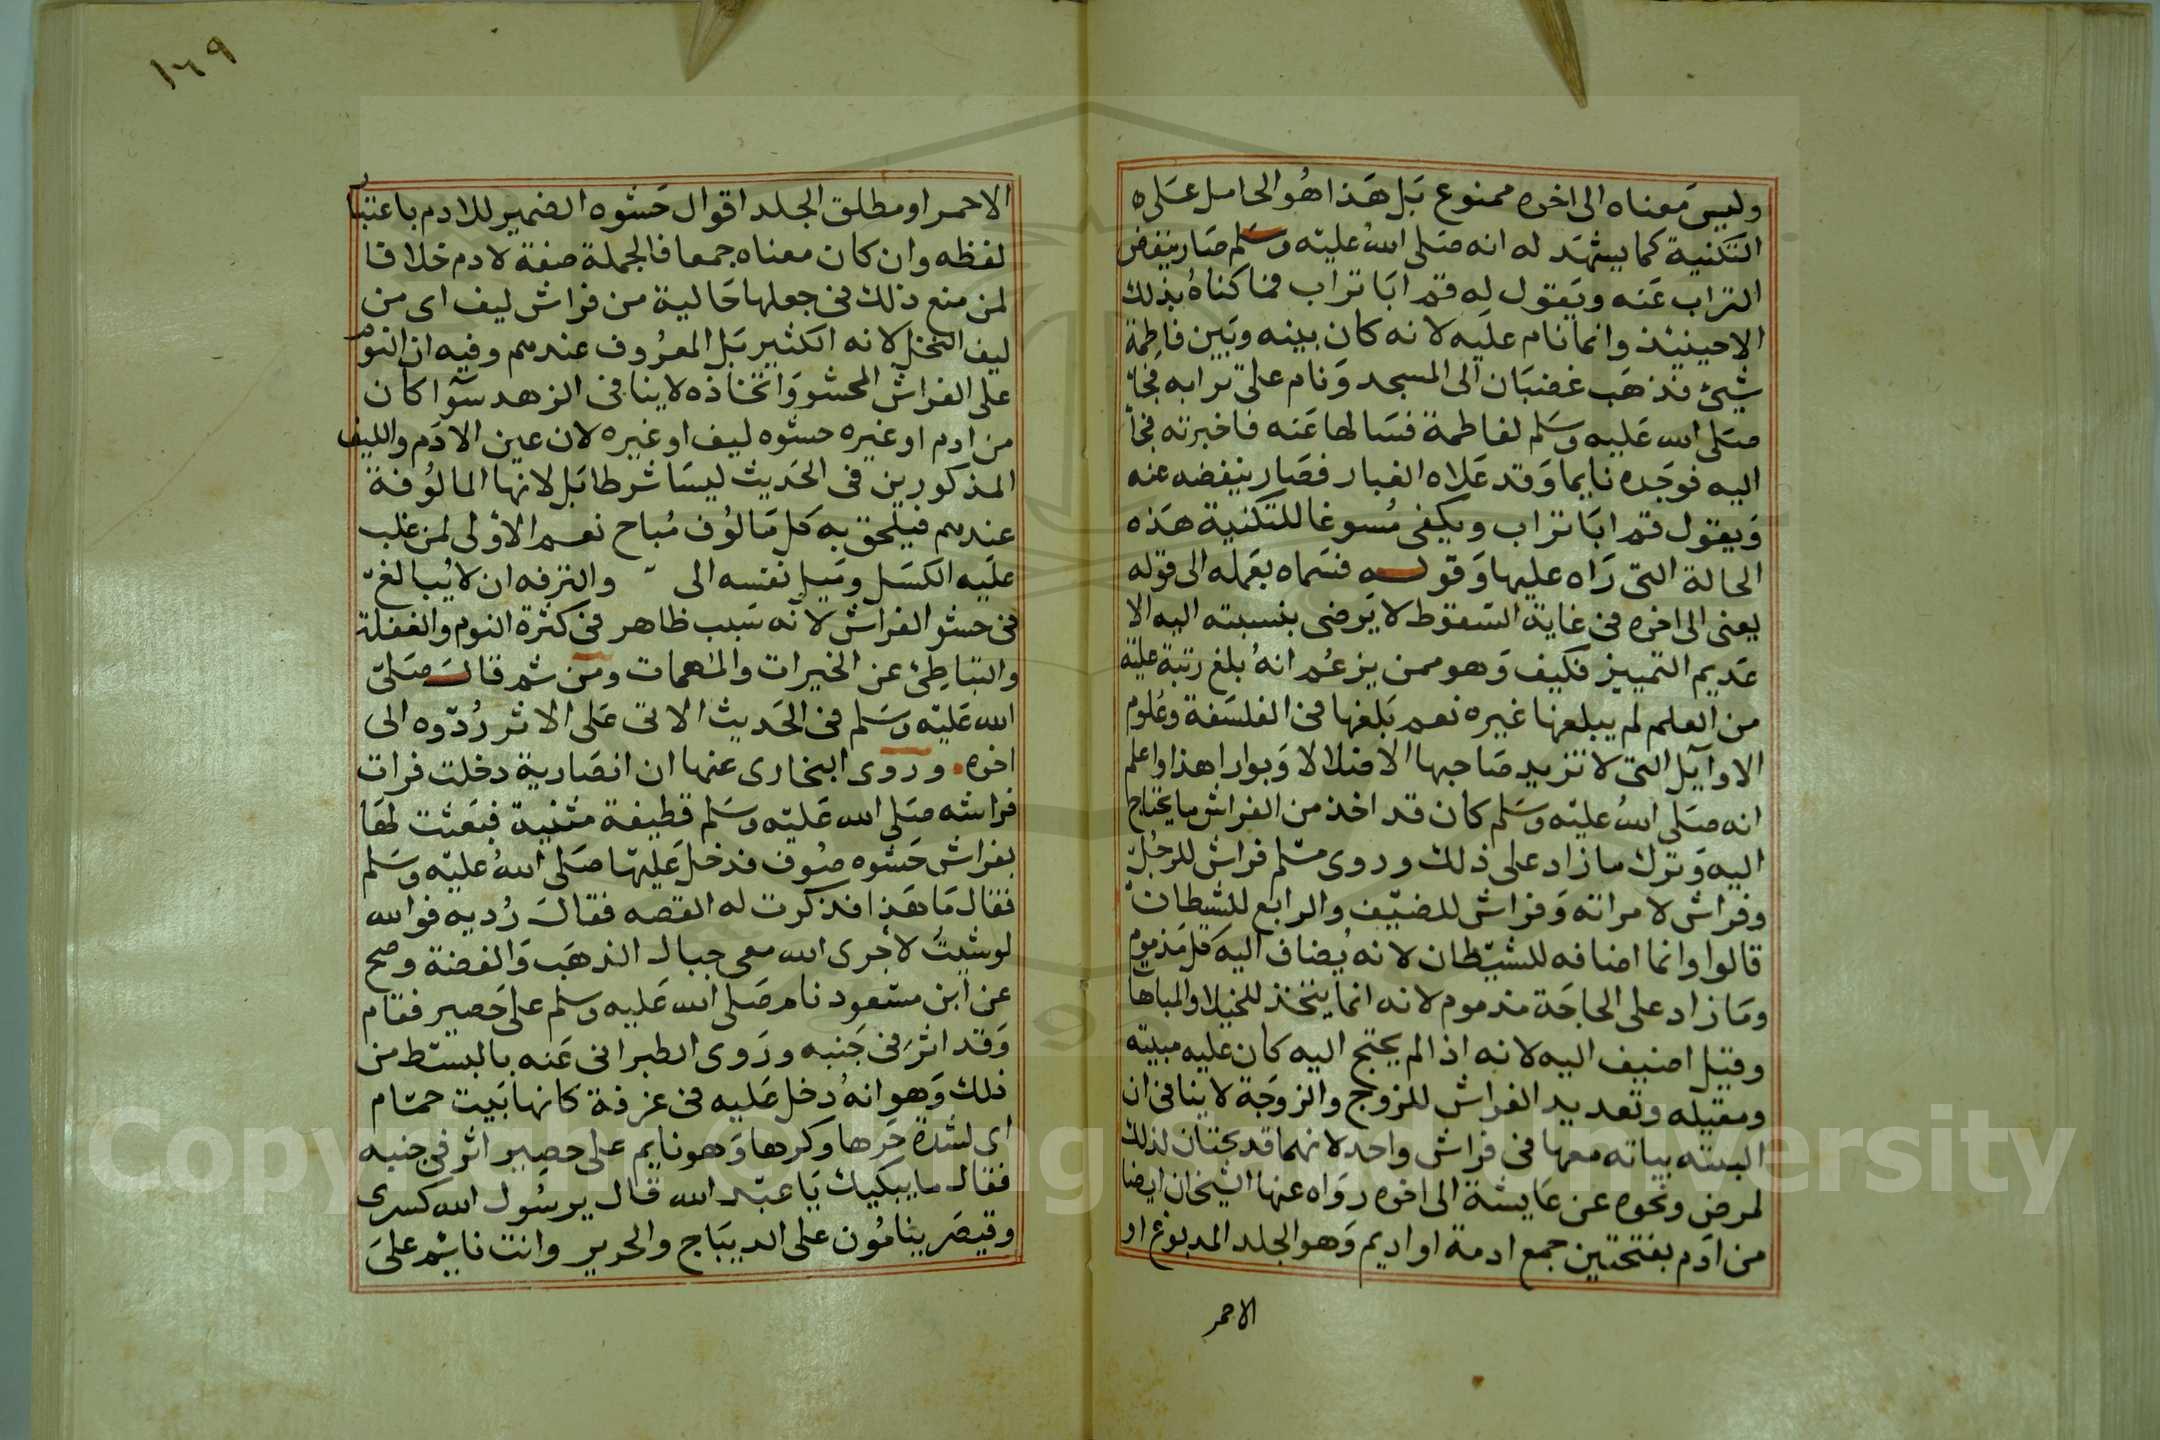 وليس معناه الى اخره ممنوع بل هذا هو الحامل على ه
التكنية كما يشهد له انه صلى الله عليه وسلم صار ينفض
التراب عنه ويقول له قم ابا تراب فما كناه بذلك
الاحينئذ وانما نام عليه لانه كان بينه وبين فاطمة
شيئ فذهب غضبان الى المسجد ونام على ترابه فجا
صلى الله عليه وسلم لفاطمة فسالها عنه فاخبرته فجا
اليه فوجده نايما وقد علاه الغبار فصار ينفضه عنه
ويقول قم ابا تراب ويكفى مسوغا للتكنية هذه
الحالة التى راه عليها وقوله فسماه بعمله الى قوله
يعنى الى اخره فى غاية السقوط لا يرضى بنسبته اليه الا
عديم التمييز فكيف وهو ممن يزعم انه بلغ رتبة علية
من العلم لم يبلغها غيره نعم بلغها فى الفلسفة وعلوم
الاوايل التى لا تزيد صاحبها الا ضلالا وبوارا هذا واعلم
انه صلى الله عليه وسلم كان قد اخذ من الفراش ما يحتاج
اليه وترك ما زاد على ذلك وروى مسلم فراش للرجل
وفراش لامراته وفراش للضيف والرابع للشيطان
قالوا وانما اضافه للشيطان لانه يضاف اليه كل مذموم
وما زاد على الحاجة مذموم لانه انما يتخذ للخيلا والمباها
وقيل اضيف اليه لانه اذا لم يحتج اليه كان عليه مبيته
ومقيله وتعديد الفراش للزوج والزوجة لا ينافى ان
السنة بياته معها فى فراش واحد لانهما قد يحتاجان لذلك
لمرض ونحوه عن عايشة الى اخره رواه عنها الشيخان ايضا
من ادم بفتحتين جمع ادمة او اديم وهو الجلد المدبوغ او
الاحمر
١٦٩
الاحمر او مطلق الجلد اقوال حشوه الضمير للادم باعتبا
لفظه وان كان معناه جمعا فالجملة صفة لادم خلافا
لمن منع ذلك فى جعلها حالية من فراش ليف اى من
ليف النخل لانه الكثير بل المعروف عندهم وفيه ان النوم
على الفراش المحشو واتخاذه لا ينافى الزهد سوآ كان
من ادم او غيره حشوه ليف او غيره لان عين الادم والليف
المذكورين فى الحديث ليسا شرطا بل لانها المالوفة
عندهم فيلحق به كل مالوف مباح نعم الأولى لمن غلب
عليه الكسل وميل نفسه الى والترفه ان لا يبالغ
فى حشو الفراش لانه سبب ظاهر فى كثرة النوم والغفلة
والتباطئ عن الخيرات والمهمات ومن ثم قال صلى
الله عليه وسلم فى الحديث الاتى على الاثر ردوه الى
اخره وروى البخارى عنها ان انصارية دخلت فرات
فراشه صلى الله عليه وسلم قطيفة مثنية فبعثت لها
بفراش حشوه صوف فدخل عليها صلى الله عليه وسلم
فقال ما هذا فذكرت له القصه فقال رديه فوالله
لو شيت لأجرى الله معى جبال الذهب والفضة وصح
عن ابن مسعود نام صلى الله عليه وسلم على حصير فقام
وقد اثر فى جنبه وروى الطبرانى عنه بابسط من
ذلك وهو انه دخل عليه فى غرفة كانها بيت حمام
اى لشدة حرها وكربها وهو نايم على حصير اثر فى جنبه
فقال ما يبكيك يا عبد الله قال يرسول الله كسرى
وقيصر ينامون على الديباج والحرير وانت نايم على
Copyright © King Saud University